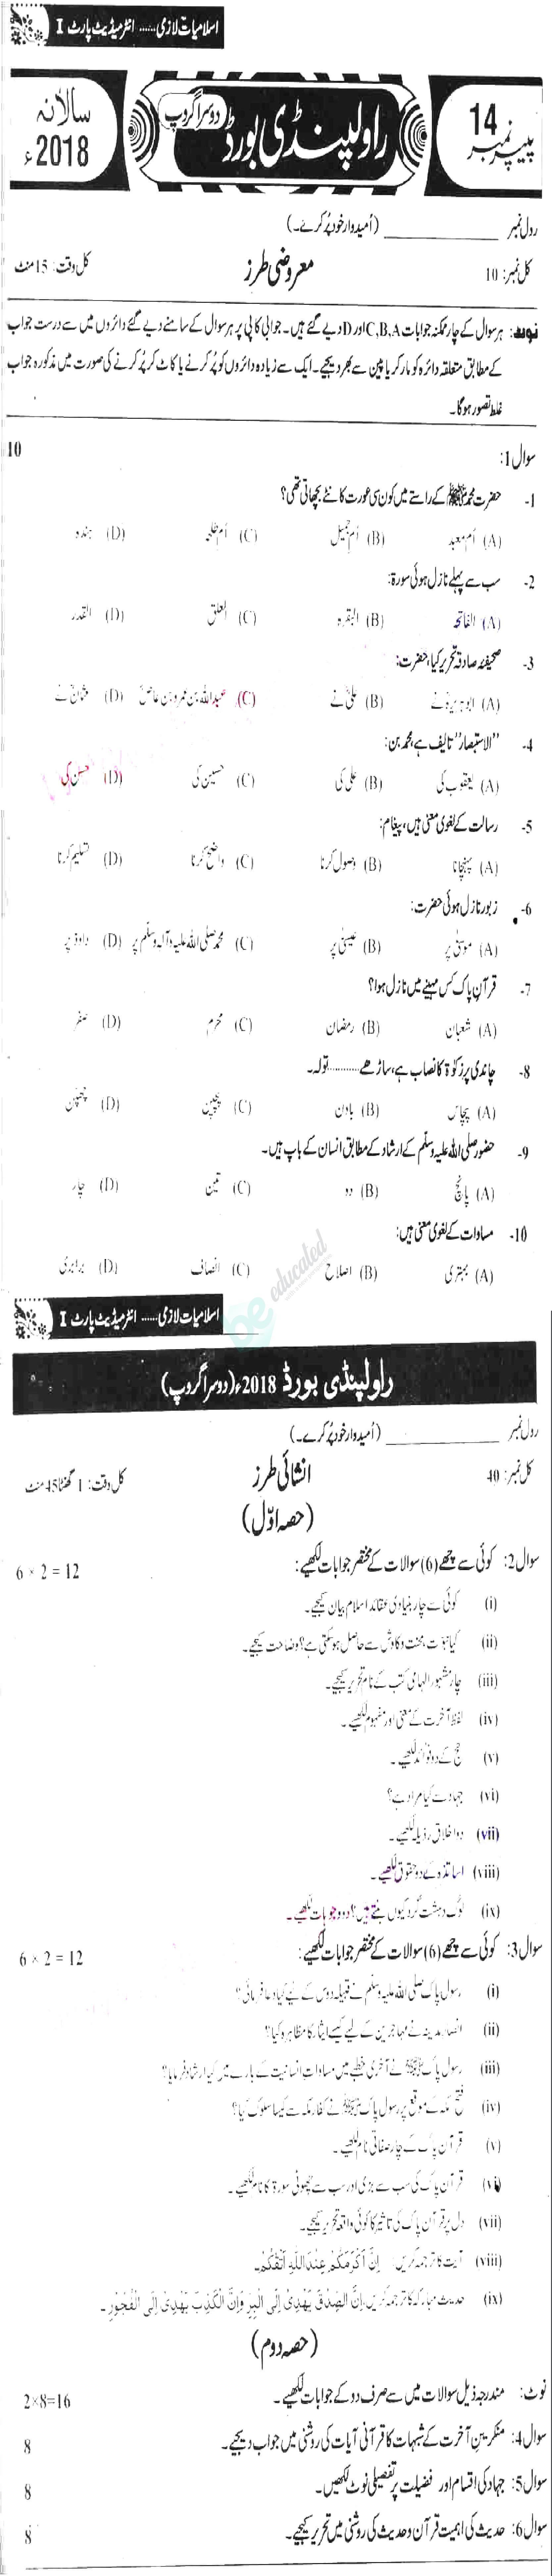 اسلامیات لازمی ...... انٹرمیڈیٹ پارٹ I
پیپر نمبر 14
راولپنڈی بورڈ دوسرا گروپ
سالانہ 2018ء
رول نمبر ____________ (اُمیدوار خود پُر کرے۔)
کل نمبر: 10 معروضی طرز کل وقت: 15 منٹ
نوٹ: ہر سوال کے چار ممکنہ جوابات C,B,A اور D دیے گئے ہیں۔ جوابی کاپی پر ہر سوال کے سامنے دیے گئے دائروں میں سے درست جواب
کے مطابق متعلقہ دائرہ کو مارکر یا پین سے بھر دیجیے۔ ایک سے زیادہ دائروں کو پُر کرنے یا کاٹ کر پُر کرنے کی صورت میں مذکورہ جواب
غلط تصور ہوگا۔
سوال 1: 10
1- حضرت محمد ﷺ کے راستے میں کون سی عورت کانٹے بچھاتی تھی؟
(A) اُم معبد (B) اُم جمیل (C) اُم طلحہ (D) ہندہ
2- سب سے پہلے نازل ہوئی سورۃ:
(A) الفاتحہ (B) البقرہ (C) العلق (D) القدر
3- صحیفہ صادقہ تحریر کیا، حضرت:
(A) ابوہریرہؓ نے (B) علیؓ نے (C) عبداللہ بن عمرو بن عاصؓ (D) عثمانؓ نے
4- "الاستبصار" تالیف ہے، محمد بن:
(A) یعقوب کی (B) علی کی (C) حسین کی (D) حسن کی
5- رسالت کے لغوی معنی ہیں، پیغام:
(A) پہنچانا (B) وصول کرنا (C) واضح کرنا (D) تسلیم کرنا
6- زبور نازل ہوئی حضرت:
(A) موسیٰؑ پر (B) عیسیٰؑ پر (C) محمد صلی اللہ علیہ وآلہ وسلم پر (D) داؤدؑ پر
7- قرآن پاک کس مہینے میں نازل ہوا؟
(A) شعبان (B) رمضان (C) محرم (D) صفر
8- چاندی پر زکوٰۃ کا نصاب ہے، ساڑھے .......... تولہ۔
(A) پچاس (B) باون (C) پچپن (D) چھپن
9- حضور صلی اللہ علیہ وسلم کے ارشاد کے مطابق انسان کے باپ ہیں۔
(A) پانچ (B) دو (C) تین (D) چار
10- مساوات کے لغوی معنی ہیں:
(A) بہتری (B) اصلاح (C) انصاف (D) برابری
be educated
اسلامیات لازمی ...... انٹرمیڈیٹ پارٹ I
راولپنڈی بورڈ 2018ء (دوسرا گروپ)
رول نمبر ____________ (اُمیدوار خود پُر کرے۔)
کل نمبر: 40 انشائی طرز کل وقت: 1 گھنٹا 45 منٹ
(حصہ اوّل)
سوال 2: کوئی سے چھے (6) سوالات کے مختصر جوابات لکھیے: 6 × 2 = 12
(i) کوئی سے چار بنیادی عقائد اسلام بیان کیجیے۔
(ii) کیا نبوت محنت و کاوش سے حاصل ہوسکتی ہے؟ وضاحت کیجیے۔
(iii) چار مشہور الہامی کتب کے نام تحریر کیجیے۔
(iv) لفظ آخرت کے معنی اور مفہوم لکھیے۔
(v) حج کے دو فوائد لکھیے۔
(vi) جہاد سے کیا مراد ہے؟
(vii) دو اخلاق رذیلہ لکھیے۔
(viii) اساتذہ کے دو حقوق لکھیے۔
(ix) لوگ دہشت گرد کیوں بنتے ہیں؟ دو وجوہات لکھیے۔
سوال 3: کوئی سے چھے (6) سوالات کے مختصر جوابات لکھیے: 6 × 2 = 12
(i) رسول پاک صلی اللہ علیہ وسلم نے قبیلہ دوس کے لیے کیا دعا فرمائی؟
(ii) انصار مدینہ نے مہاجرین کے لیے کیسے ایثار کا مظاہرہ کیا؟
(iii) رسول پاک ﷺ نے آخری خطبے میں مساوات انسانیت کے بارے میں کیا ارشاد فرمایا؟
(iv) فتح مکہ کے موقع پر رسول پاک ﷺ نے کفار مکہ سے کیسا سلوک کیا؟
(v) قرآن پاک کے چار صفاتی نام لکھیے۔
(vi) قرآن پاک کی سب سے بڑی اور سب سے چھوٹی سورۃ کا نام لکھیے۔
(vii) دل پر قرآن پاک کی تاثیر کا کوئی واقعہ تحریر کیجیے۔
(viii) آیت کا ترجمہ کریں: اِنَّ اَکْرَمَکُمْ عِنْدَاللّٰہِ اَتْقٰکُمْ۔
(ix) حدیث مبارکہ کا ترجمہ کریں: اِنَّ الصِّدْقَ یَھْدِیْ اِلَی الْبِرِّ وَاِنَّ الْکَذِبَ یَھْدِیْ اِلَی الْفُجُوْرِ۔
(حصہ دوم)
نوٹ: مندرجہ ذیل سوالات میں سے صرف دو کے جوابات لکھیے۔ 2×8=16
سوال 4: منکرین آخرت کے شبہات کا قرآنی آیات کی روشنی میں جواب دیجیے۔ 8
سوال 5: جہاد کی اقسام اور فضیلت پر تفصیلی نوٹ لکھیں۔ 8
سوال 6: حدیث کی اہمیت قرآن و حدیث کی روشنی میں تحریر کیجیے۔ 8